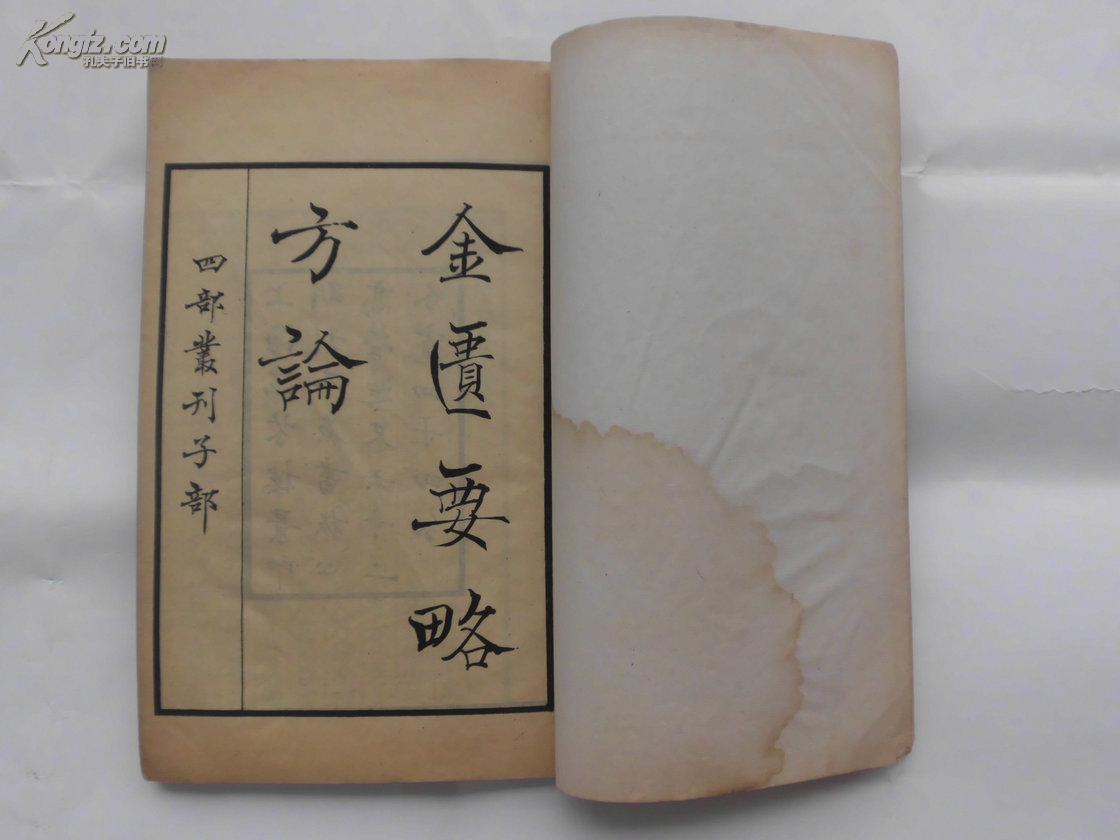 Kongfz.com
孔夫子旧书网
金匱要略
方論
四部叢刊子部